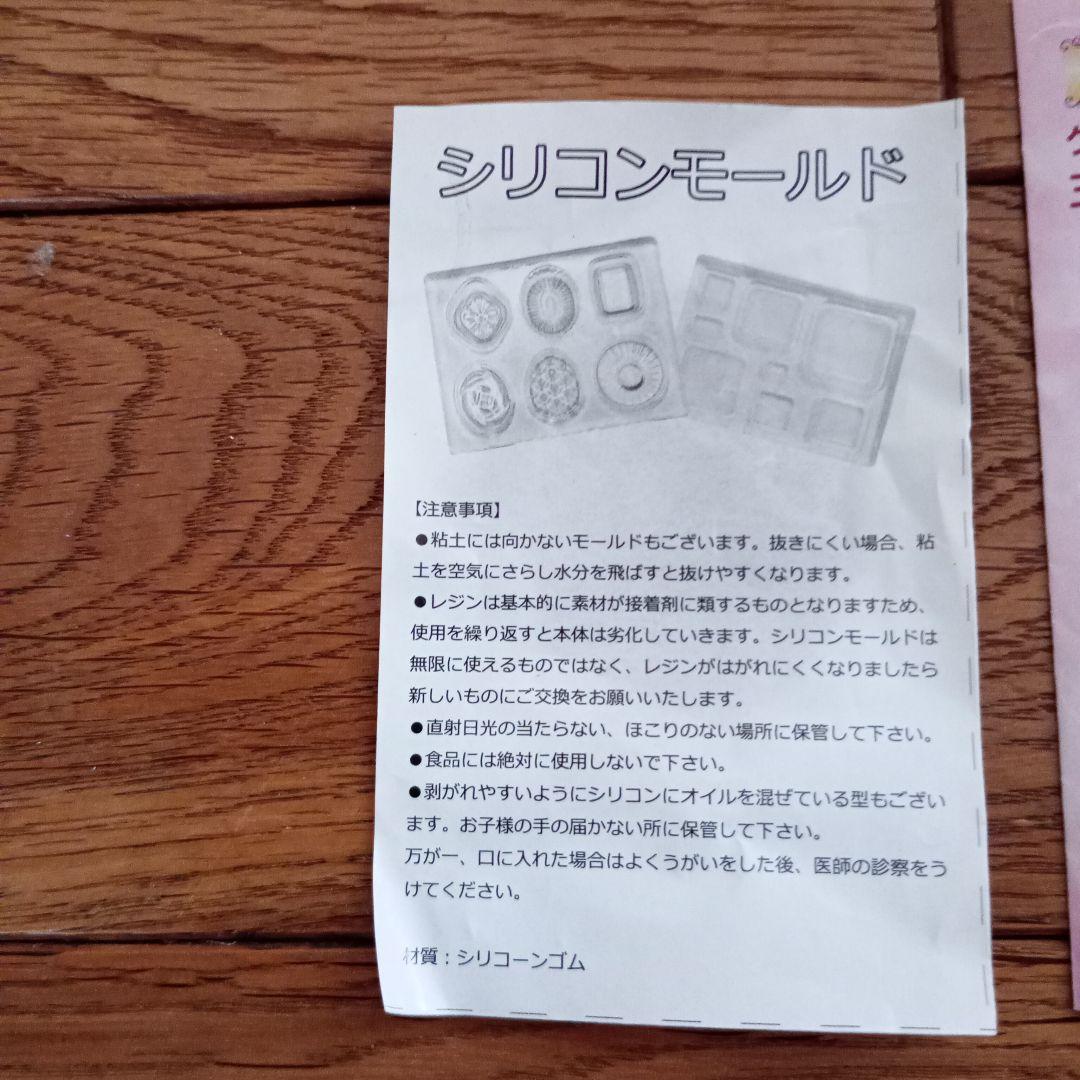 シリコンモールド
【注意事項】
●粘土には向かないモールドもございます。抜きにくい場合、粘
土を空気にさらし水分を飛ばすと抜けやすくなります。
●レジンは基本的に素材が接着剤に類するものとなりますため、
使用を繰り返すと本体は劣化していきます。シリコンモールドは
無限に使えるものではなく、レジンがはがれにくくなりましたら
新しいものにご交換をお願いいたします。
●直射日光の当たらない、ほこりのない場所に保管して下さい。
●食品には絶対に使用しないで下さい。
●剥がれやすいようにシリコンにオイルを混ぜている型もござい
ます。お子様の手の届かない所に保管して下さい。
万が一、口に入れた場合はよくうがいをした後、医師の診察をう
けてください。
材質：シリコーンゴム